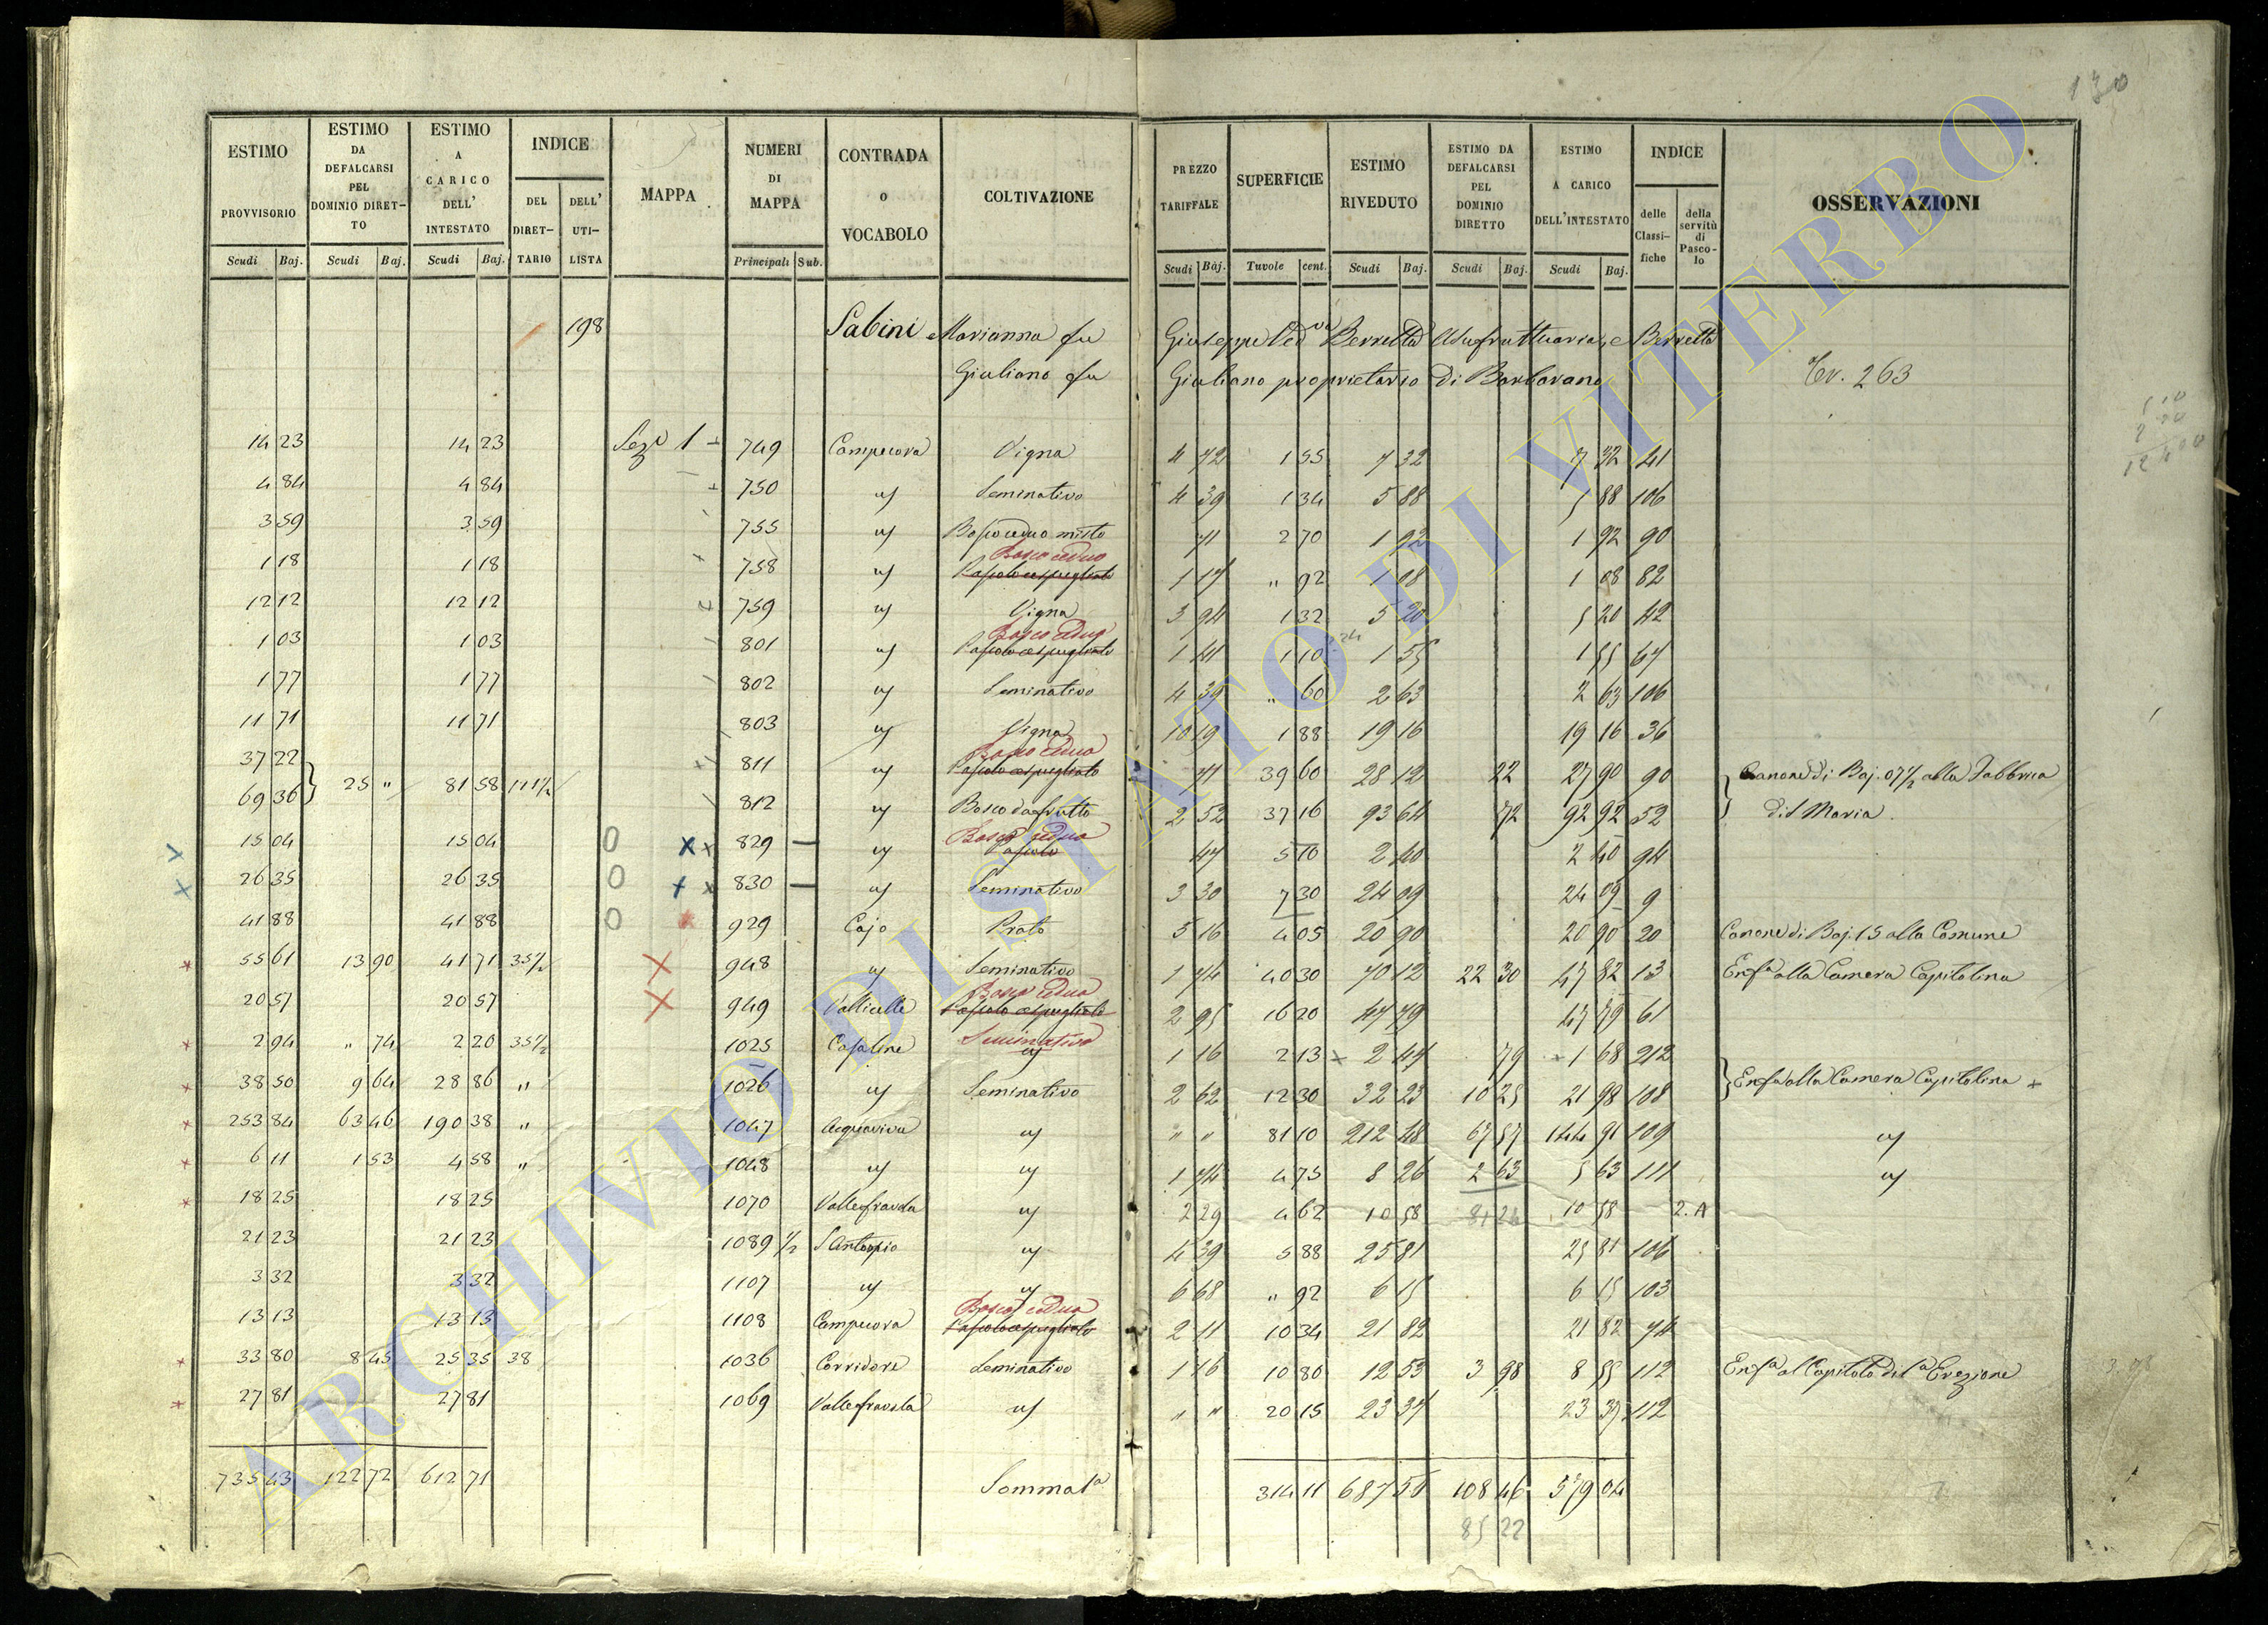 130
ESTIMO PROVVISORIO Scudi Baj. | ESTIMO DA DEFALCARSI PEL DOMINIO DIRETTO Scudi Baj. | ESTIMO A CARICO DELL' INTESTATO Scudi Baj. | INDICE DEL DIRETTARIO | DELL' UTILISTA | MAPPA | NUMERI DI MAPPA Principali Sub. | CONTRADA o VOCABOLO | COLTIVAZIONE | PREZZO TARIFFALE Scudi Baj. | SUPERFICIE Tavole cent. | ESTIMO RIVEDUTO Scudi Baj. | ESTIMO DA DEFALCARSI PEL DOMINIO DIRETTO Scudi Baj. | ESTIMO A CARICO DELL'INTESTATO Scudi Baj. | INDICE delle Classifiche | della servitù di Pascolo | OSSERVAZIONI
198 Sabini Marianna fu Giuseppe Ved.va Berretta Usufruttuaria, e Berretta
Giuliano fu Giuliano proprietario di Barbarano Ter. 263
14 23 14 23 Sez.e 1 749 Campicova Vigna 4 72 1 55 7 32 7 32 41
4 84 4 84 750 " Seminativo 4 39 1 34 5 88 5 88 106
3 59 3 59 755 " Bosco ceduo misto 71 2 70 1 92 1 92 90
1 18 1 18 758 " Bosco ceduo Pascolo cespugliato 1 17 " 92 1 08 1 08 82
12 12 12 12 759 " Vigna 3 94 1 32 5 20 5 20 42
1 03 1 03 801 " Bosco ceduo Pascolo cespugliato 1 41 1 10 1 55 1 55 67
1 77 1 77 802 " Seminativo 4 39 " 60 2 63 2 63 106
11 71 11 71 803 " Vigna 10 19 1 88 19 16 19 16 36
37 22 811 " Bosco ceduo Pascolo cespugliato 71 39 60 28 12 22 27 90 90 Canone di Baj. 07 1/2 alla Fabbrica
69 36 25 " 81 58 121 1/2 812 " Bosco da frutto 2 52 37 16 93 64 72 92 92 52 di S Maria
15 04 15 04 0 829 " Bosco ceduo Pascolo 47 5 10 2 40 2 40 94
26 35 26 35 0 830 " Seminativo 3 30 7 30 24 09 24 09 9
41 88 41 88 0 929 Cajo Prato 5 16 4 05 20 90 20 90 20 Canone di Baj. 15 alla Comune
55 61 13 90 41 71 35 1/2 948 " Seminativo 1 74 40 30 70 12 22 30 47 82 13 Enf.a alla Camera Capitolina
20 57 20 57 949 Vallicelle Bosco ceduo Pascolo cespugliato 2 95 16 20 47 79 47 79 61
2 94 " 74 2 20 35 1/2 1025 Casaline Seminativo " 1 16 2 13 2 47 79 1 68 212
38 50 9 64 28 86 " 1026 " Seminativo 2 62 12 30 32 23 10 25 21 98 108 Enf.a alla Camera Capitolina
253 84 63 46 190 38 " 1047 Acquaviva " " " 81 10 212 48 67 57 144 91 109 "
6 11 1 53 4 58 " 1048 " " 1 74 4 75 8 26 2 63 5 63 111 "
18 25 18 25 1070 Vallefravola " 2 29 4 62 10 58 81 26 10 58 2. A
21 23 21 23 1089 1/2 S Antonio " 4 39 5 88 25 81 25 81 106
3 32 3 32 1107 " " 6 68 " 92 6 15 6 15 103
13 13 13 13 1108 Campicova Bosco ceduo Pascolo cespugliato 2 11 10 34 21 82 21 82 74
33 80 8 45 25 35 38 1036 Corridore Seminativo 1 16 10 80 12 53 3 98 8 55 112 Enf.a al Capitolo di 1.a Erezione 3.98
27 81 27 81 1069 Vallefravola " " " 20 15 23 37 23 37 112
735 43 122 72 612 71 Somma 1.a 314 11 687 50 108 46 579 04
85 22
ARCHIVIO DI STATO DI VITERBO